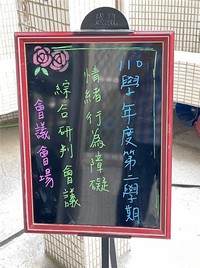 110學年度第二學期
情緒行為障礙
綜合研判會議
會議會場